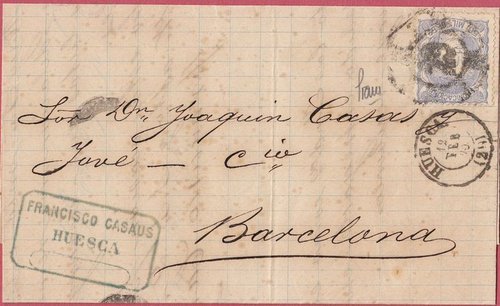 Sor Dn Joaquin Casas y
Jové — Cia
Barcelona
FRANCISCO CASAUS
HUESCA
HUESCA
12
FEB